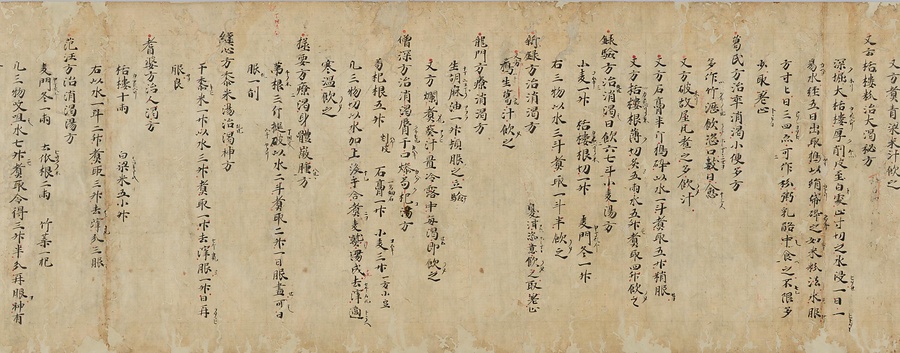 又方煮青粱米汁飲之
又云栝樓粉治大渇秘方
深掘大栝樓厚削皮至白處止寸切之水浸一日一
易水経五日出取搗以絹袋濾之如米粉法水服
方寸匕日三四亦可作粉粥乳酪中食之不限多
少取差止
葛氏方治卒消渇小便多方
多作竹瀝飲恣口數日愈
又方破故屋瓦煮之多飲汁
又方石膏半斤搗碎以水一斗煮取五升稍服
又方栝樓根薄切炙五兩水五升煮取四升飲之
録驗方治消渇日飲六七斗小麦湯方
小麦一升 栝樓根切一升 麦門冬一升
右三物以水三斗煮取一斗半飲之
新録方治消渇方
搗生葛汁飲之
龍門方療消渇方
生胡麻油一升頓服之立驗
又方爛煮葵汁置冷露中毎渇即飲之
僧深方治消渇脣干口燥枸杞湯方
枸杞根五升 石膏一升 小麦三升
凡三物切以水加上沒手合煮麦熟湯成去滓適
寒温飲之
極要方療渇身體
葛根三斤 以水二斗煮取二升一日服盡
服一剤
經心方黍米湯治渇神方
千黍米一升以水三升煮取一升去滓服一升日再
服良
耆婆方治人渇方
栝樓十兩 白粱米五小升
右以水一斗二升煮取三升去滓分三服
范汪方治消渇湯方
麦門冬一兩 土瓜根二兩 竹葉一把
凡三物㕮咀水七升煮取令得三升半分再服神有